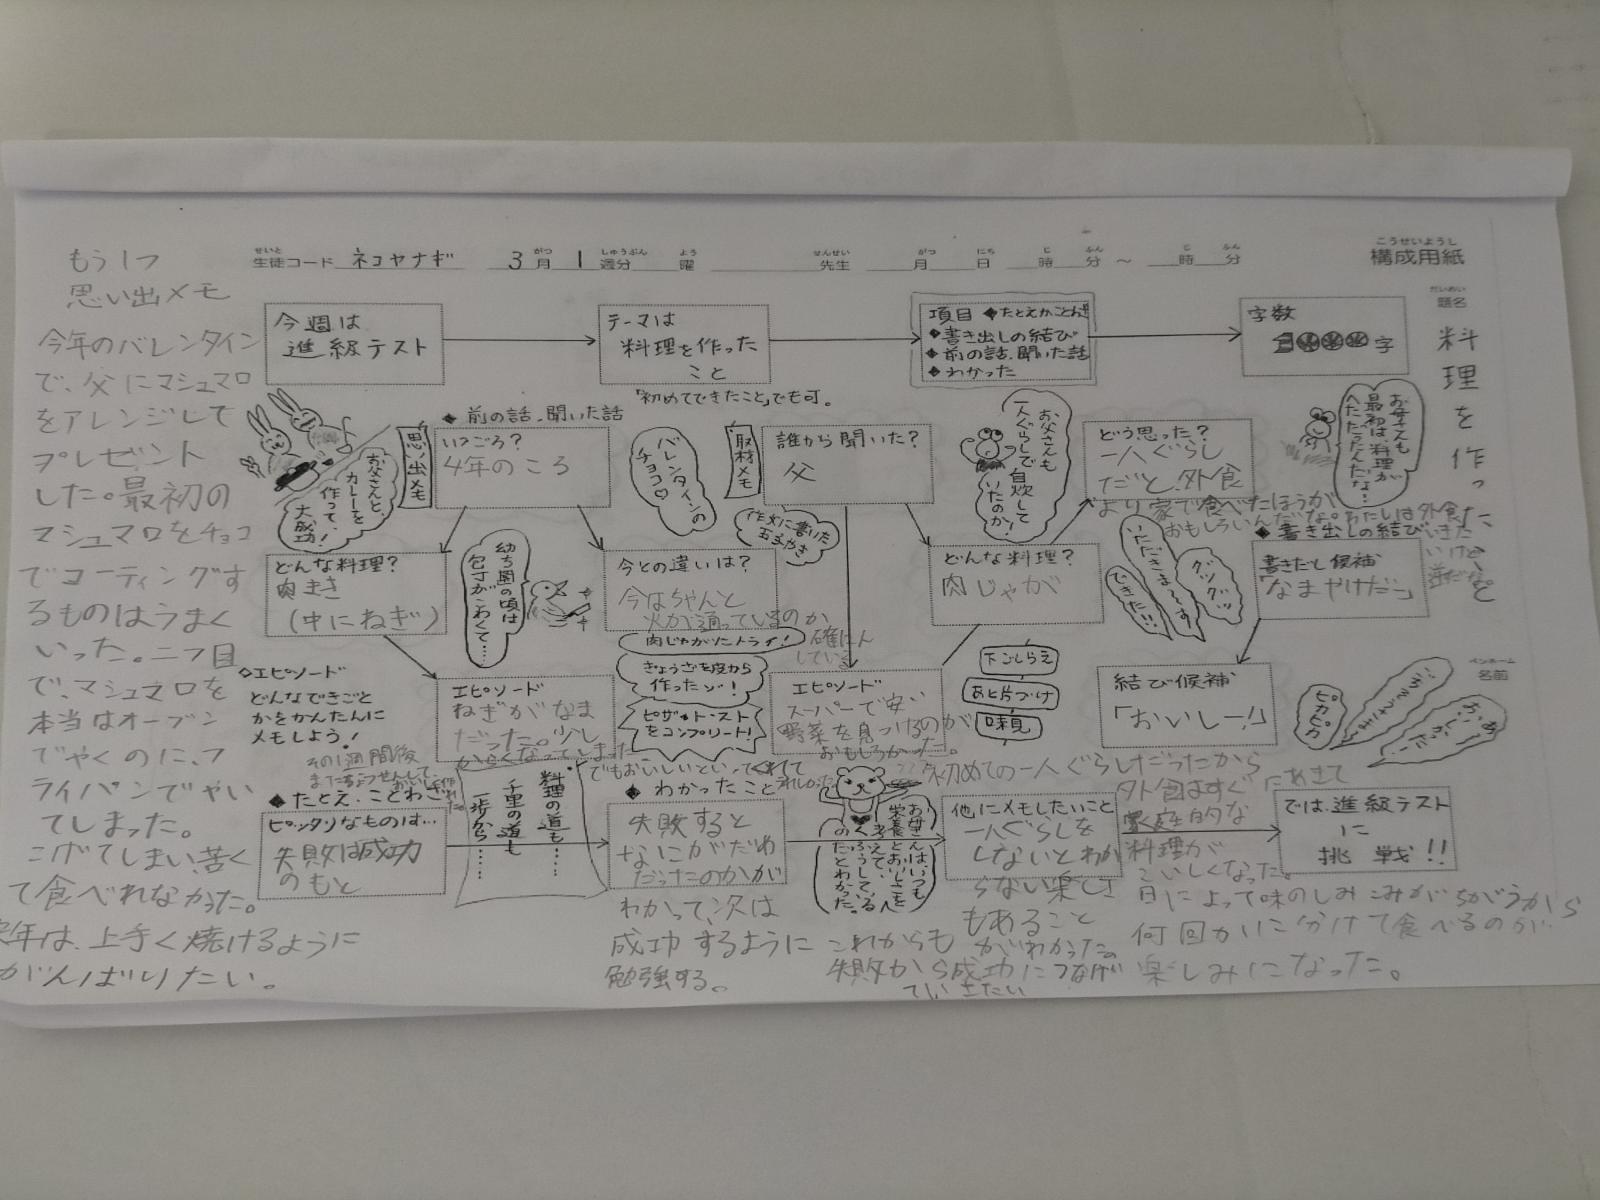 こうせいようし
構成用紙
せいと
生徒コード ネコヤナギ 3月 1週分 曜 先生 月 日 時 分 ～ 時 分
がつ しゅうぶん よう せんせい がつ にち じ ふん じ ふん
だいめい
題名
料理を作っ
ペンネーム
名前
今週は
進級テスト
テーマは
料理を作った
こと
「初めてできたこと」でも可。
項目 ◆たとえかことわざ
◆書き出しの結び
◆前の話、聞いた話
◆わかった
字数
字
もう1つ
思い出メモ
今年のバレンタイン
で、父にマシュマロ
をアレンジして
プレゼント
した。最初の
マシュマロをチョコ
でコーティングす
るものはうまく
いった。二つ目
で、マシュマロを
本当はオーブン
でやくのに、フ
ライパンでやい
てしまった。
こげてしまい、苦く
て食べれなかった。
年は、上手く焼けるように
がんばりたい。
◆前の話、聞いた話
思い出メモ
いつごろ?
4年のころ
お父さんと、
カレーを
作って、
大成功!
どんな料理?
肉まき
(中にねぎ)
幼ち園の頃は
包丁がこわくて……
今との違いは?
今はちゃんと
火が通っているのか
確にん
している
バレンタインの
チョコ♡
エピソード
ねぎがなま
だった。少し
からくなってしまった
でもおいしいといってくれて
うれしかった
肉じゃがにトライ!
ぎょうざを皮から
作ったゾ!
ピザ・トースト
をコンプリート!
◇エピソード
どんなできごと
かをかんたんに
メモしよう!
その1週間後
取材メモ
誰から聞いた?
父
作文に書いた
玉子やき
お父さんも
一人ぐらしで自炊して
いたのか!
どんな料理?
肉じゃが
エピソード
スーパーで安い
野菜を見つけるのが
おもしろかった。
下ごしらえ
あと片づけ
味見
どう思った?
一人ぐらし
だと、外食
より家で食べたほうが
おもしろいんだな。わたしは外食
いけど、
逆だな。と
お母さんも
最初は料理が
へただったんだな!
いただきま～す
できた!
グツグツ
◆書き出しの結び
書きだし候補
「なまやけだ~」
結び候補
「おいしー!」
ピカピカ
◆たとえ、ことわざ
ピッタリなものは…
失敗は成功
のもと
料理の道も……
千里の道も
一歩から……
◆わかったこと
失敗すると
なにがだめ
だったのかが
わかって、次は
成功するように
勉強する。
お母さんは、いつも
栄養とおいしさを
考えて、
くふうしている人
のだとわかった。
他にメモしたいこと
一人ぐらしを
しないとわか
らない楽しさ
もあること
がわかった。
これからも
失敗から成功につなげ
ていきたい
初めての一人ぐらしだったから
外食はすぐにあきて
家庭的な
料理が
こいしくなった。
日によって味のしみこみがちがうから
何回かに分けて食べるのが
楽しみになった。
では、進級テスト
に
挑戦!!